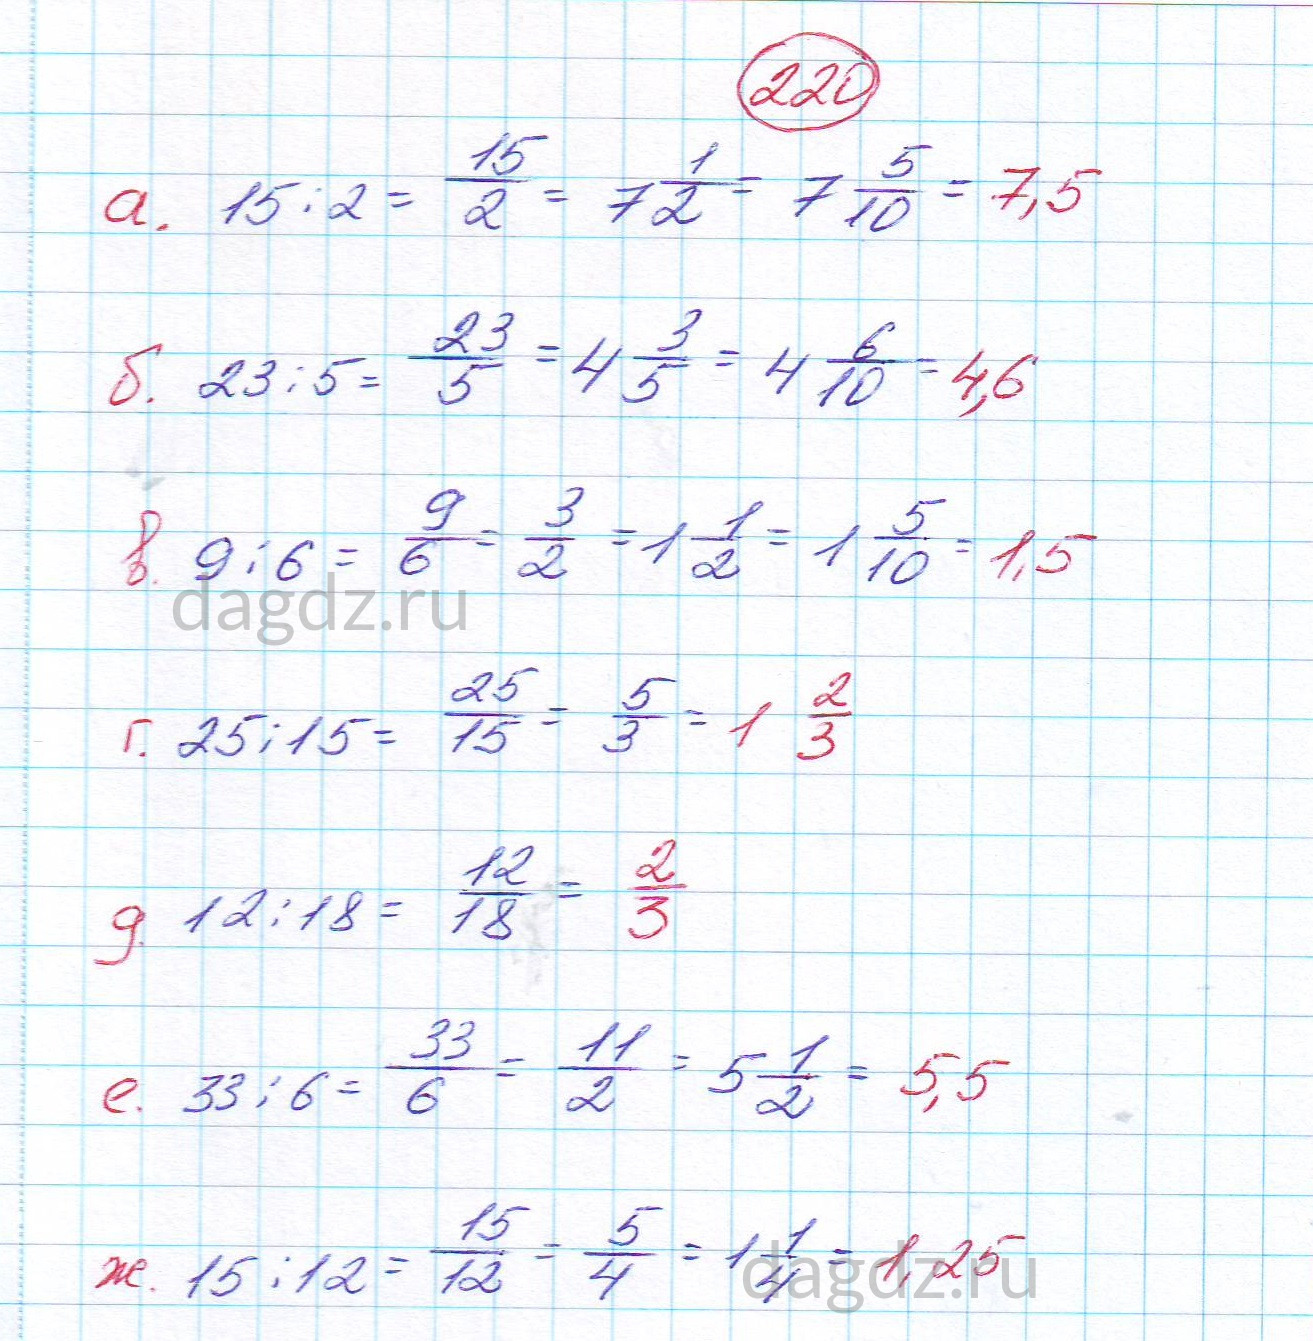 220
а. 15 : 2 = 15/2 = 7 1/2 = 7 5/10 = 7,5
б. 23 : 5 = 23/5 = 4 3/5 = 4 6/10 = 4,6
в. 9 : 6 = 9/6 = 3/2 = 1 1/2 = 1 5/10 = 1,5
dagdz.ru
г. 25 : 15 = 25/15 = 5/3 = 1 2/3
д. 12 : 18 = 12/18 = 2/3
е. 33 : 6 = 33/6 = 11/2 = 5 1/2 = 5,5
ж. 15 : 12 = 15/12 = 5/4 = 1 1/4 = 1,25
dagdz.ru